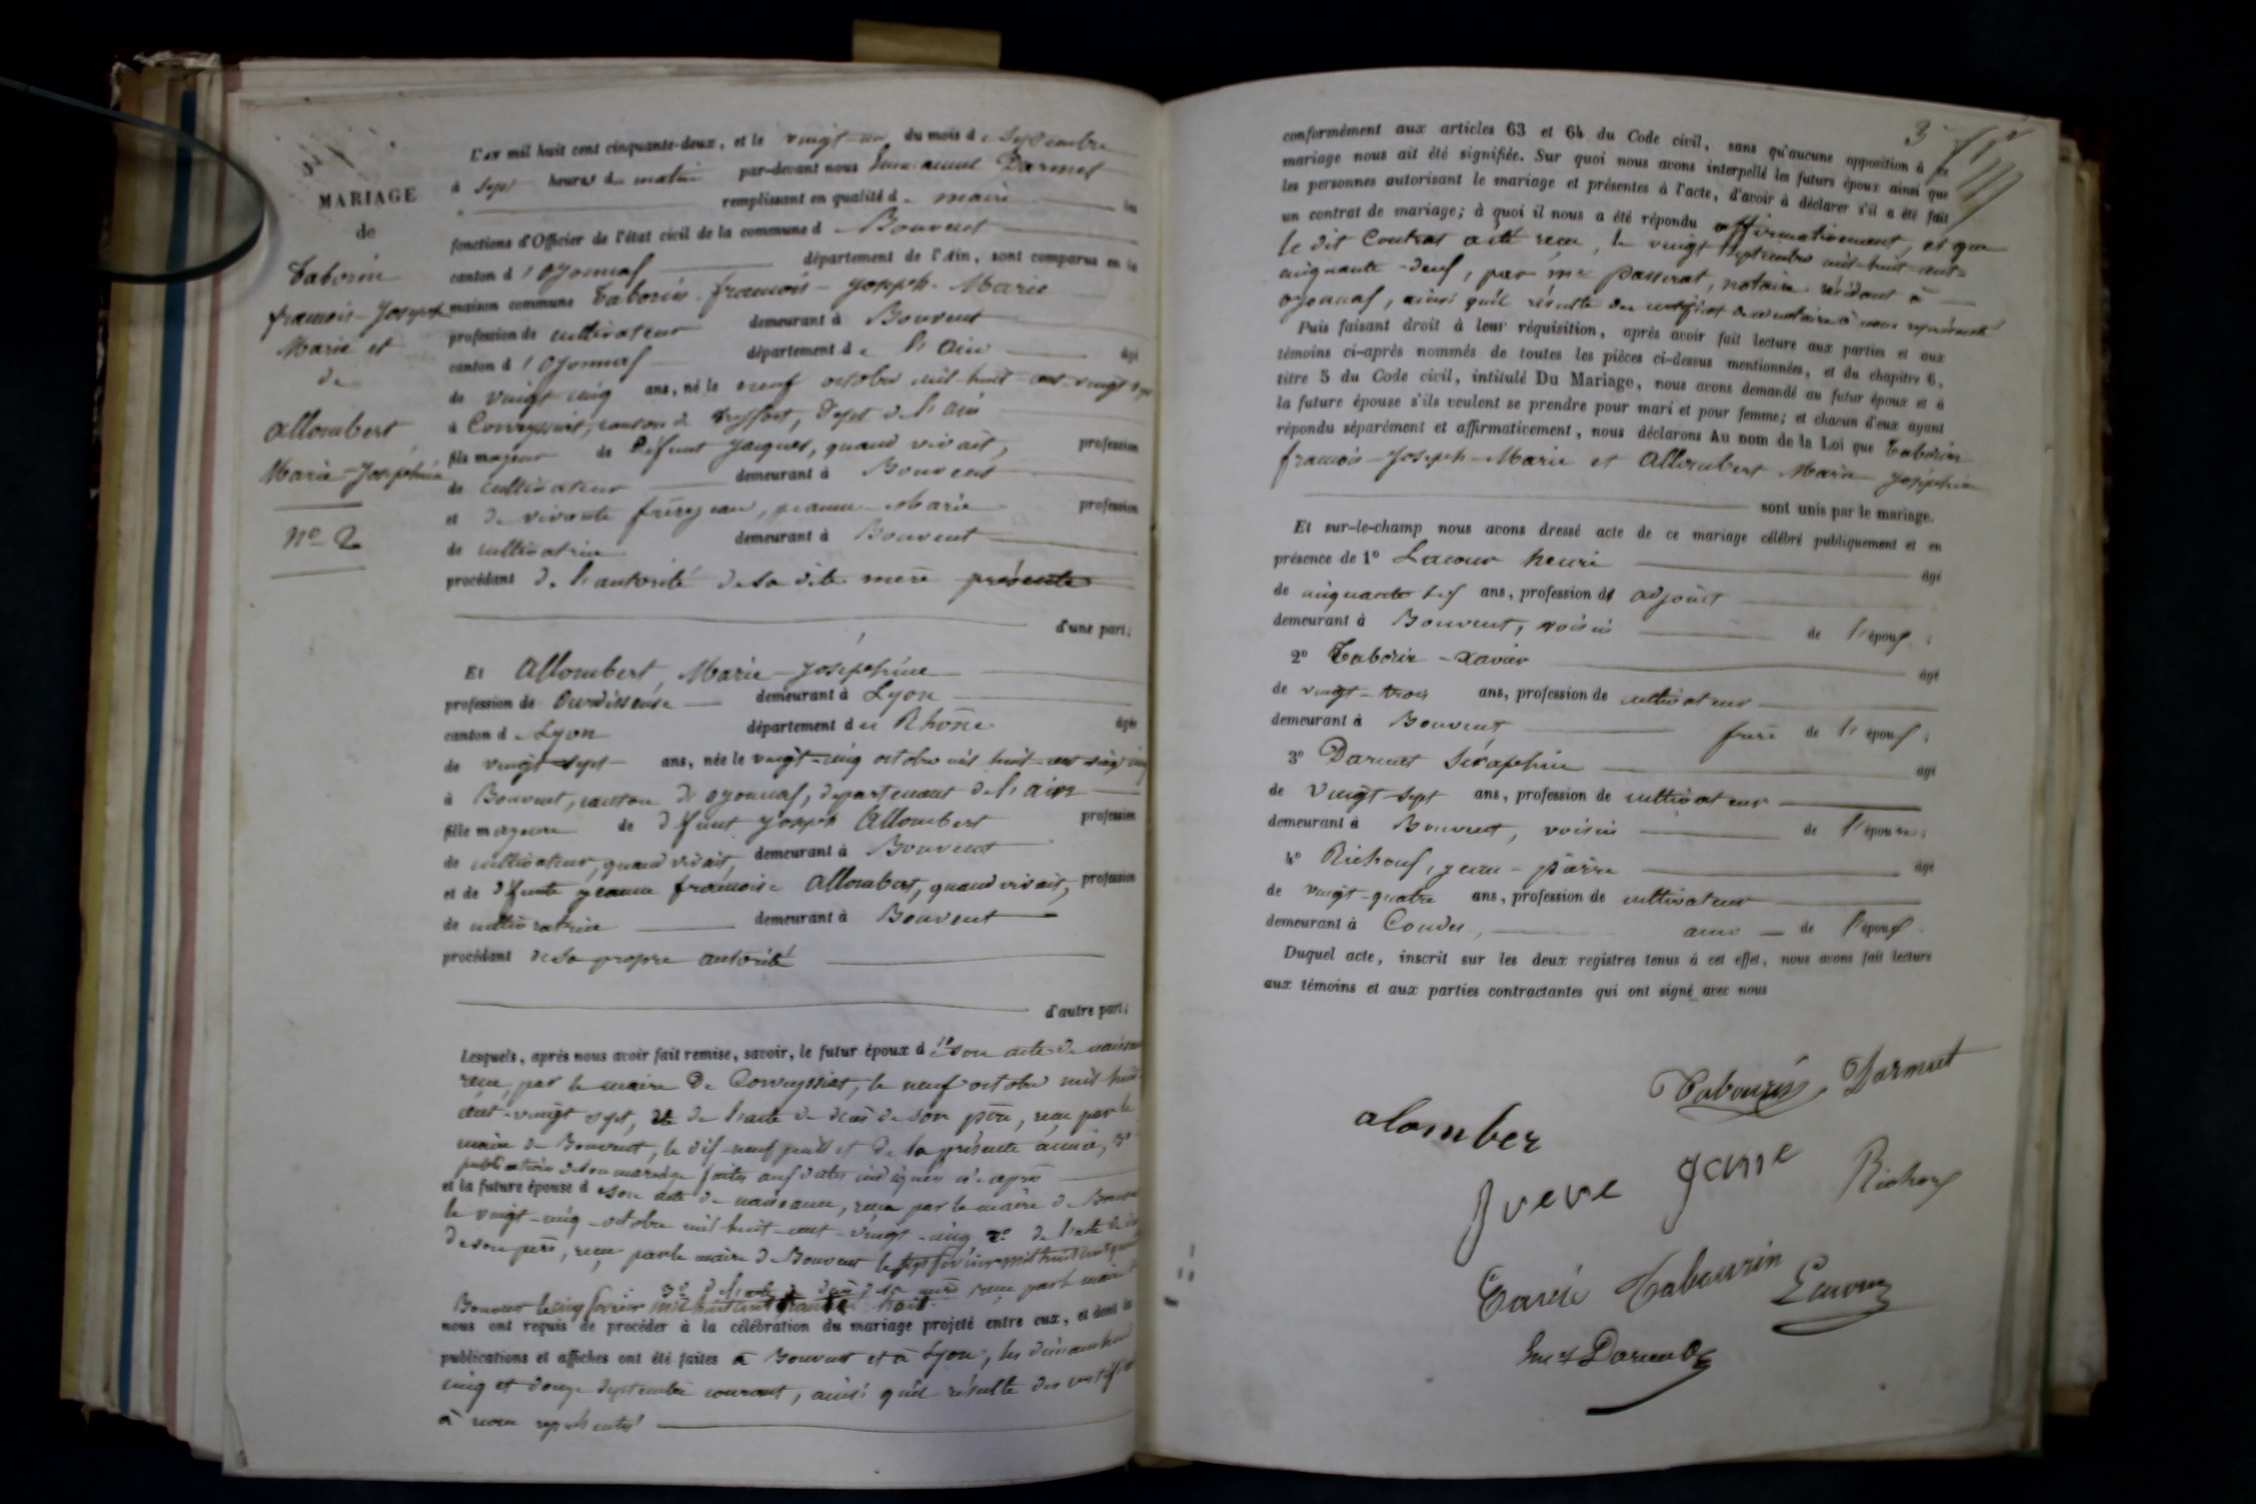 MARIAGE
de
Taborin
francois-Joseph
Marie et
de
Allombert
Marie-Joséphine
No 2
L'an mil huit cent cinquante-deux, et le vingt-un du mois de Septembre
à sept heures du matin par-devant nous Emmanuel Darmet
remplissant en qualité de maire les
fonctions d'Officier de l'état civil de la commune d Bouvent
canton d'Oyonnax département de l'Ain, sont comparus en la
maison commune Taborin francois-Joseph-Marie
profession de cultivateur demeurant à Bouvent
canton d'Oyonnax département de l'Ain âgé
de vingt cinq ans, né le neuf octobre mil-huit-cent-vingt
à Corveyssiat, canton de treffort, dépt de l'ain
fils majeur de Défunt Jacques, quand vivait, profession
de cultivateur demeurant à Bouvent
et de vivante jeanne-Marie profession
de cultivatrice demeurant à Bouvent
procédant de l'autorité de sa dite mère présente
d'une part;
Et Allombert, Marie-Joséphine
profession de Ourdisseuse demeurant à Lyon
canton de Lyon département du Rhône âgée
de vingt-sept ans, née le vingt-cinq octobre mil huit-cent vingt cinq
à Bouvent, canton d'oyonnax, département de l'ain
fille majeure de défunt Joseph Allombert profession
de cultivateur, quand vivait, demeurant à Bouvent
et de défunte jeanne francoise Allombert, quand vivait, profession
de cultivatrice demeurant à Bouvent
procédant de sa propre autorité
d'autre part;
Lesquels, après nous avoir fait remise, savoir, le futur époux de 1° son acte de naissance
reçu, par le maire de Corveyssiat, le neuf octobre mil huit
cent-vingt sept, de l'acte de décès de son père, reçu par le
maire de Bouvent, le dix-neuf juillet de la présente année, 3°
publication de son mariage faites aux dates indiquées ci-après
et la future épouse de son acte de naissance, reçu par le maire de Bouvent
le vingt-cinq octobre mil huit-cent-vingt-cinq 2° de l'acte de décès
de son père, reçu par le maire de Bouvent le sept février mil huit cent
3° de l'acte de décès de sa mère reçu par le maire
Bouvent le cinq février mil huit cent trente huit
nous ont requis de procéder à la célébration du mariage projeté entre eux, et dont les
publications et affiches ont été faites à Bouvent et à Lyon, les dimanches
cinq et douze septembre courant, ainsi qu'il résulte des certificats
à nous représentés
3
conformément aux articles 63 et 64 du Code civil, sans qu'aucune opposition à ce
mariage nous ait été signifiée. Sur quoi nous avons interpellé les futurs époux ainsi que
les personnes autorisant le mariage et présentes à l'acte, d'avoir à déclarer s'il a été fait
un contrat de mariage; à quoi il nous a été répondu affirmativement, et que
le dit Contrat a été reçu, le vingt septembre mil-huit-cent-
cinquante-deux, par me Passerat, notaire résidant à
oyonnax, ainsi qu'il résulte du certificat du notaire à nous représenté
Puis faisant droit à leur réquisition, après avoir fait lecture aux parties et aux
témoins ci-après nommés de toutes les pièces ci-dessus mentionnées, et du chapitre 6,
titre 5 du Code civil, intitulé Du Mariage, nous avons demandé au futur époux et à
la future épouse s'ils veulent se prendre pour mari et pour femme; et chacun d'eux ayant
répondu séparément et affirmativement, nous déclarons Au nom de la Loi que Taborin
francois-Joseph-Marie et Allombert Marie Joséphine
sont unis par le mariage.
Et sur-le-champ nous avons dressé acte de ce mariage célébré publiquement et en
présence de 1° Lacour henri âgé
de cinquante ans, profession d' adjoint
demeurant à Bouvent, voisin de l'époux;
2° Taborin-Xavier âgé
de vingt-trois ans, profession de cultivateur
demeurant à Bouvent frère de l'époux;
3° Darmet Séraphin âgé
de Vingt-sept ans, profession de cultivateur
demeurant à Bouvent, voisin de l'épouse;
4° Richoux, jean-pierre âgé
de vingt-quatre ans, profession de cultivateur
demeurant à Condes, ami de l'époux
Duquel acte, inscrit sur les deux registres tenus à cet effet, nous avons fait lecture
aux témoins et aux parties contractantes qui ont signé avec nous
Tabourin Darmet
alomber
Jane
Richoux
Tabourin
Lacour
Darmet